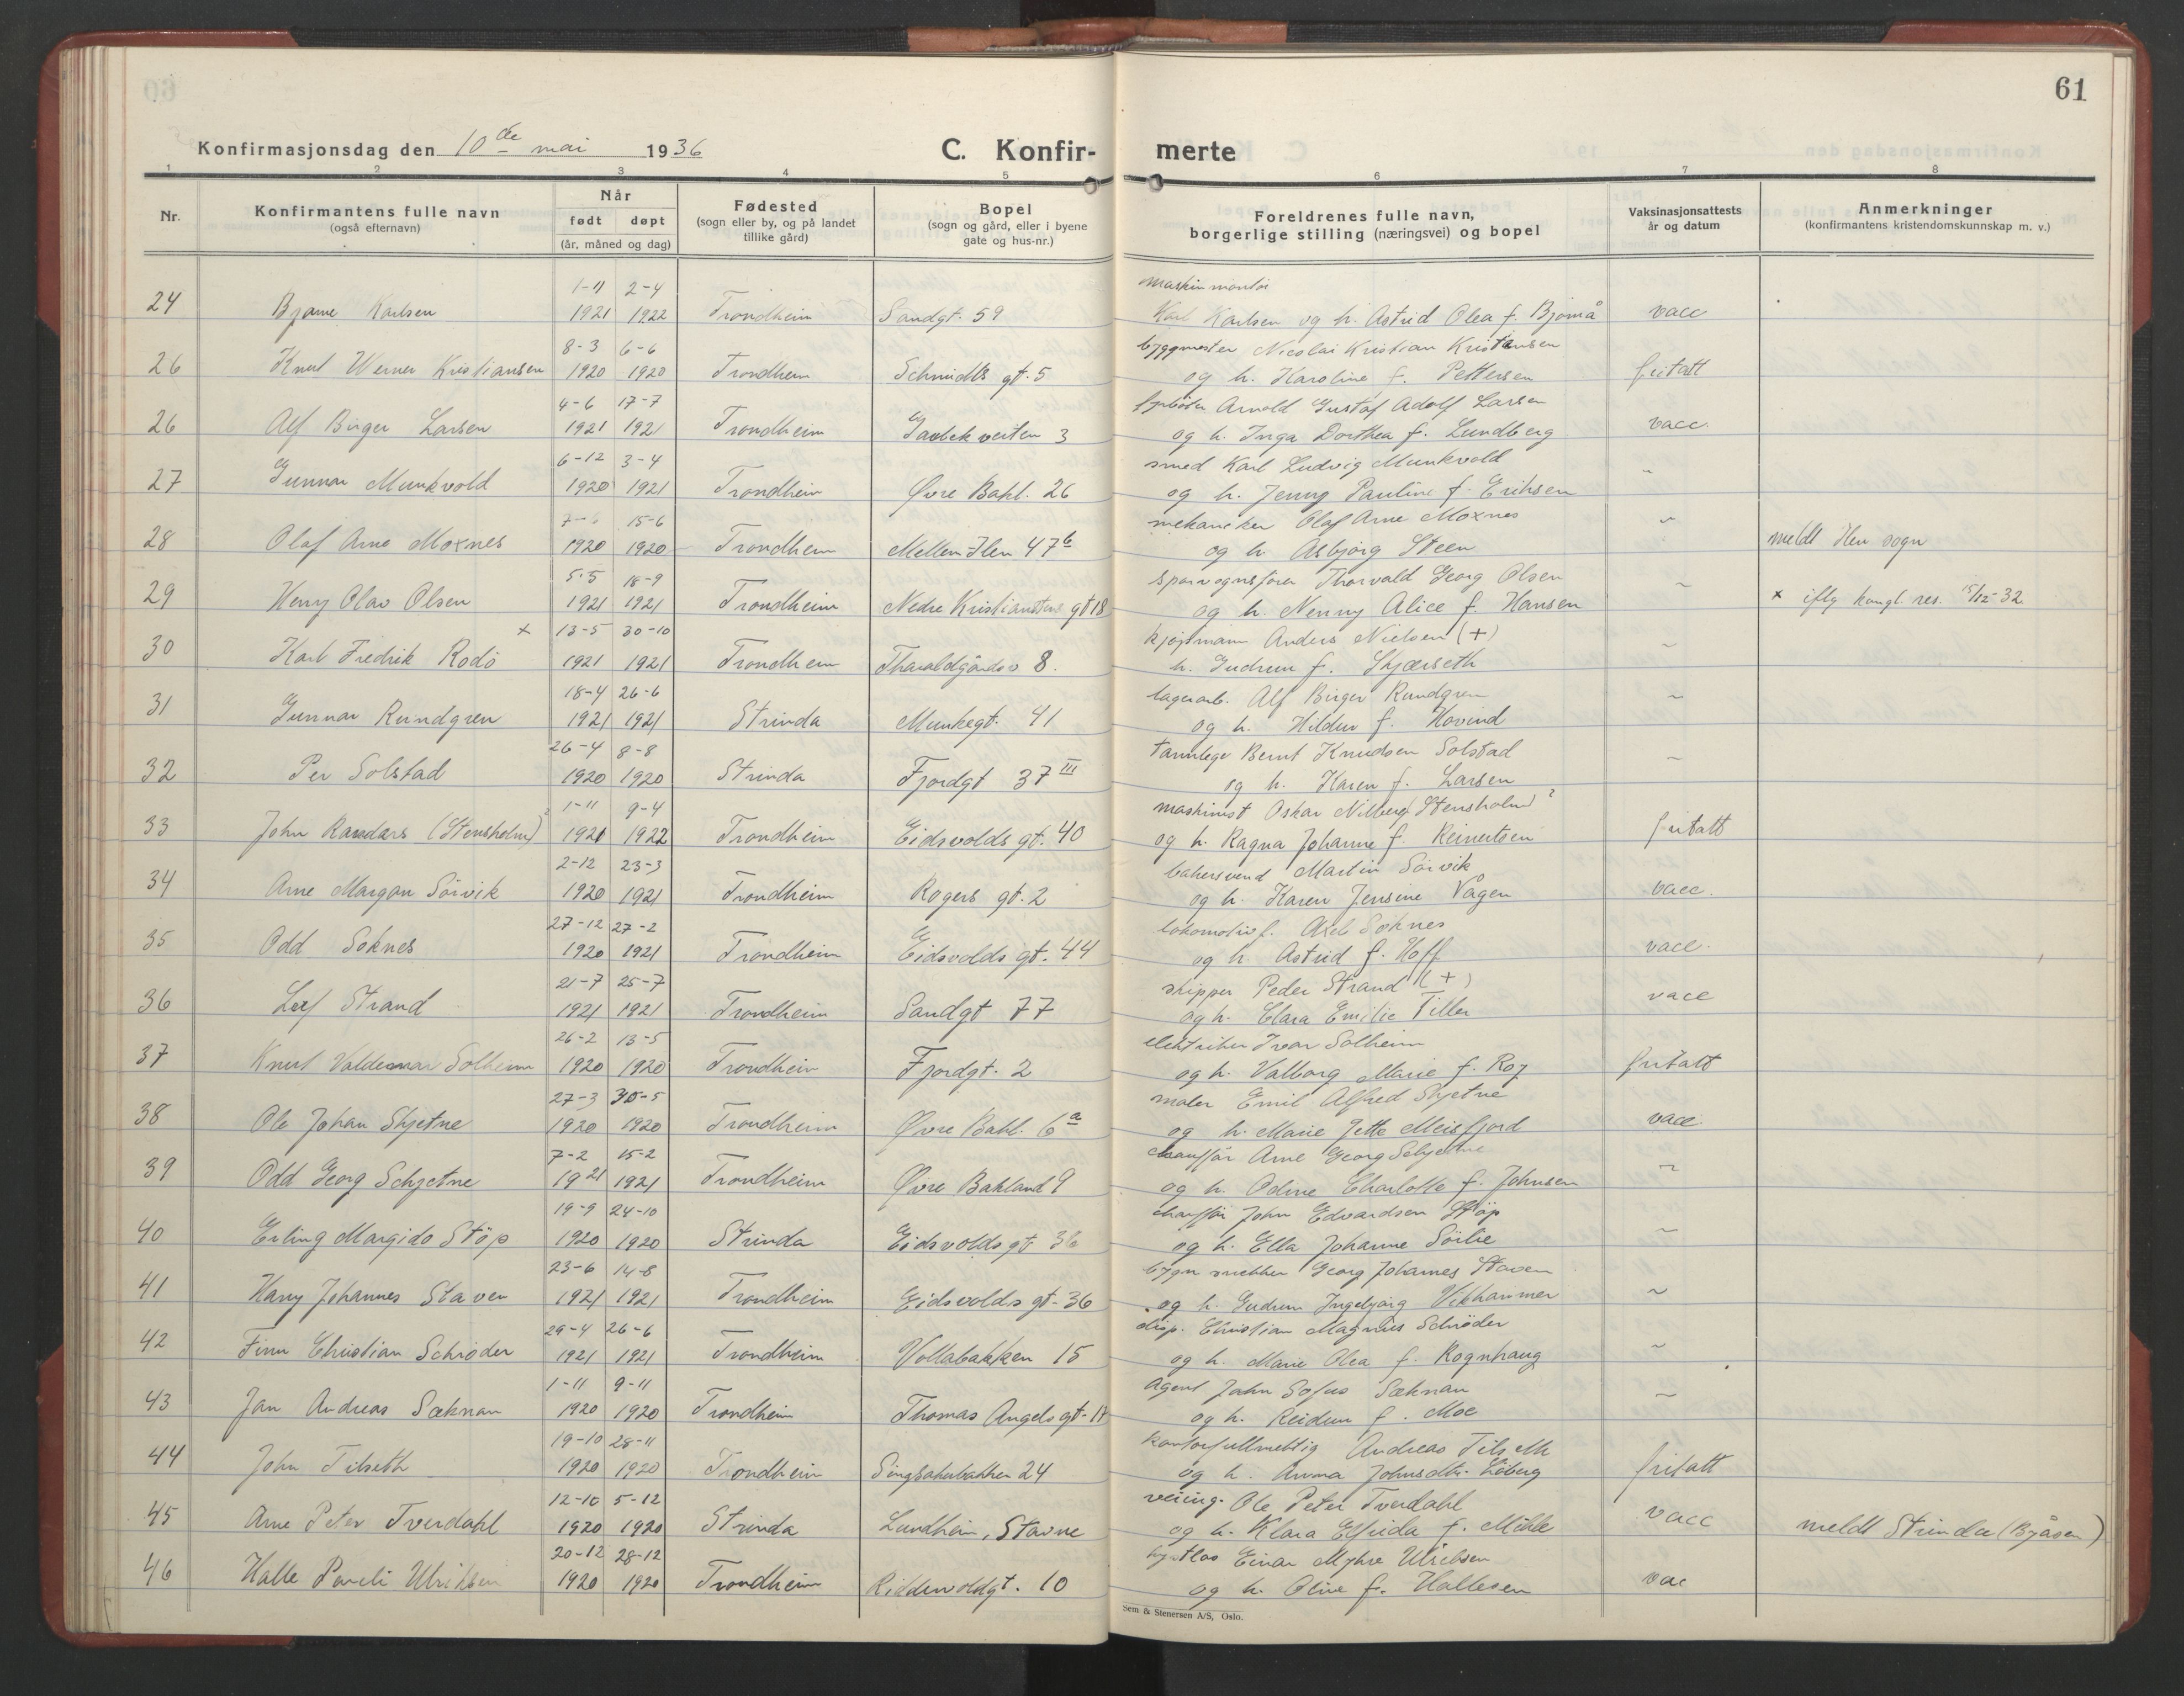 61
Konfirmasjonsdag den 10de mai 1936
C. Konfirmerte
1 2 3 4 5 6 7 8
Nr.
Konfirmantens fulle navn
(også efternavn)
Når
født døpt
(år, måned og dag)
Fødested
(sogn eller by, og på landet
tillike gård)
Bopel
(sogn og gård, eller i byene
gate og hus-nr.)
Foreldrenes fulle navn,
borgerlige stilling (næringsvei) og bopel
Vaksinasjonsattests
år og datum
Anmerkninger
(konfirmantens kristendomskunnskap m. v.)
1-11 2-4 maskinmontør
24 Bjarne Karlsen 1921 1922 Trondheim Sandgt. 59 Karl Karlsen og h. Astrid Olea f. Bjømå vacc
8-3 6-6 byggmester Nicolai Kristian Kristiansen
26 Knut Werner Kristiansen 1920 1920 Trondheim Schmidts gt. 5 og h. Karoline f. Pettersen fritatt
4-6 17-7 Arnold Gustaf Adolf Larsen
26 Alf Birger Larsen 1921 1921 Trondheim Gaubekveiten 3 og h. Inga Dorthea f. Lundberg vacc.
6-12 3-4 smed Karl Ludvig Munkvold
27 Gunnar Munkvold 1920 1921 Trondheim Øvre Bakl. 26 og h. Jenny Pauline f. Eriksen "
7-6 15-6 mekaniker Olaf Arne Moxnes
28 Olaf Arne Moxnes 1920 1920 Trondheim Mellem Ilen 47b og h. Asbjørg Steen " meldt Ilen sogn
5-5 18-9 sporvognsfører Thorvald Georg Olsen
29 Henry Olav Olsen 1921 1921 Trondheim Nedre Kristianstens gt 18 og h. Nenny Alice f. Hansen " x iflg kongl. res. 15/12-32
x 13-5 30-10 kjøpmann Anders Nielsen (+)
30 Karl Fredrik Rodö 1921 1921 Trondheim Tharaldgårdsv 8. h. Gudrun f. Skjærseth "
18-4 26-6 lagerarb. Alf Birger Rundgren
31 Gunnar Rundgren 1921 1921 Strinda Munkegt. 41 og h. Hildur f. Hovind "
26-4 8-8 tannlege Bernt Knudsen Solstad
32 Per Solstad 1920 1920 Strinda Fjordgt 37 III og h. Karen f. Larsen "
1-11 9-4 maskinist Oskar Nilberg Stensholm ?
33 John Randars (Stensholm) ? 1921 1922 Trondheim Eidsvolds gt. 40 og h. Ragna Johanne f. Reinertsen fritatt
2-12 23-3 bakersvend Martin Sörvik
34 Arne Margon Sörvik 1920 1921 Trondheim Rogers gt. 2 og h. Karen Jensine Vågen vacc.
27-12 27-2 lokomotivf. Axel Soknes
35 Odd Soknes 1920 1921 Trondheim Eidsvolds gt. 44 og h. Astrid f. Hoff vacc.
21-7 25-7 skipper Peder Strand (+)
36 Leif Strand 1921 1921 Trondheim Sandgt 77 og h. Clara Emilie Tiller vacc
26-2 13-5 elektriker Ivar Solheim
37 Knut Valdemar Solheim 1920 1920 Trondheim Fjordgt. 2 og h. Valborg Marie f. Roz fritatt
27-3 30-5 maler Emil Alfred Skjetne
38 Ole Johan Skjetne 1920 1920 Trondheim Øvre Bakl. 6a og h. Marie Jette Meisfjord vacc.
7-2 15-2 chauffør Arne Georg Schjetne
39 Odd Georg Schjetne 1921 1921 Trondheim Øvre Bakland 9 og h. Odine Charlotte f. Johnsen "
19-9 24-10 chauffør John Edvardsen Støp
40 Erling Margido Støp 1920 1920 Strinda Eidsvoldsgt 36 og h. Ella Johanne Sörlie "
23-6 14-8 bygn.snekker Georg Johannes Staven
41 Harry Johannes Staven 1921 1921 Trondheim Eidsvolds gt. 36 og h. Gudrun Ingebjørg Vikhammer "
29-4 26-6 disp. Christian Magnus Schrøder
42 Finn Christian Schrøder 1921 1921 Trondheim Vollabakken 15 og h. Marie Olea f. Rognhaug "
1-11 9-11 Agent John Sofus Sæknan
43 Jan Andreas Sæknan 1920 1920 Trondheim Thomas Angels gt. og h. Reidun f. Moe "
19-10 28-11 kontorfullmektig Andreas Tilseth
44 John Tilseth 1920 1920 Trondheim Singsakerbakken 24 og h. Anna Johnsdtr. Löberg fritatt
12-10 5-12 Ole Peter Tverdahl
45 Arne Peter Tverdahl 1920 1920 Strinda Lundheim, Stavne og h. Klara Elfrida f. Mikle vacc meldt Strinda (Byåsen)
20-12 28-12 Einar Myhre Ulriksen
46 Halle Paveli Ulriksen 1920 1920 Trondheim Riddervoldgt. 10 og h. Oline f. Hallesen vac
Sem & Stenersen A/S, Oslo.